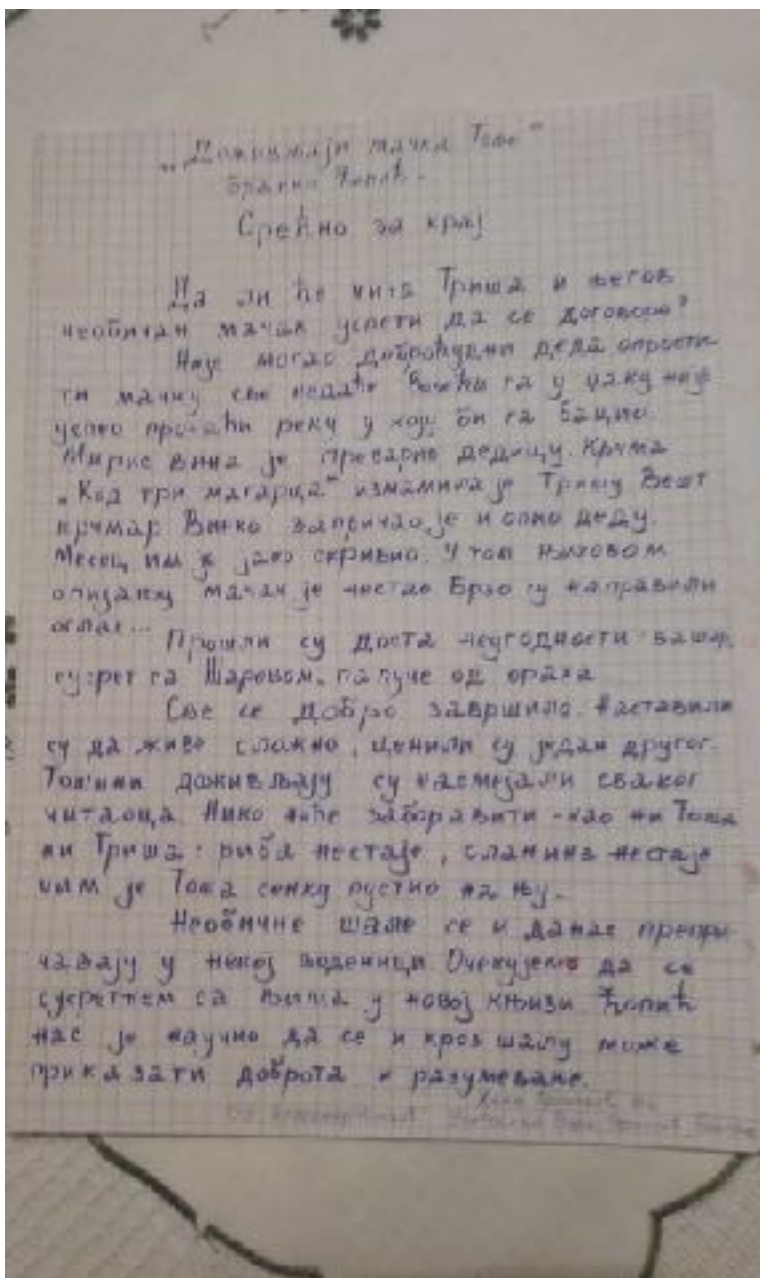 „Доживљаји мачка Тоше“
Бранко Ћопић.
Срећно за крај
Да ли ће чича Триша и његов
необичан мачак успети да се договоре?
Није могао доброћудни деда опрости-
ти мачку све недаће. Носећи га у џаку није
успео пронаћи реку у коју би га бацио.
Мирис вина је преварио дедицу. Крчма
„Код три магарца“ измамила је Тришу. Вешт
крчмар Винко запричао је и опио деду.
Месец им је јако скривио. У том њиховом
опијању мачак је нестао. Брзо су направили
оглас...
Прошли су доста неугодности: вашар,
сусрет са Шаровом, папуче од ораха
Све се добро завршило. Наставили
су да живе сложно, ценили су један другог.
Тошини доживљају су насмејали сваког
читаоца. Нико неће заборавити - као ни Тоша
ни Триша: риба нестаје, сланина нестаје
чим је Тоша сенку пустио на њу.
Необичне шале се и данас препри
чавају у некој воденици. Очекујемо да се
сусретнем са њима у новој књизи. Ћопић
нас је научио да се и кроз шалу може
приказати доброта и разумевање.